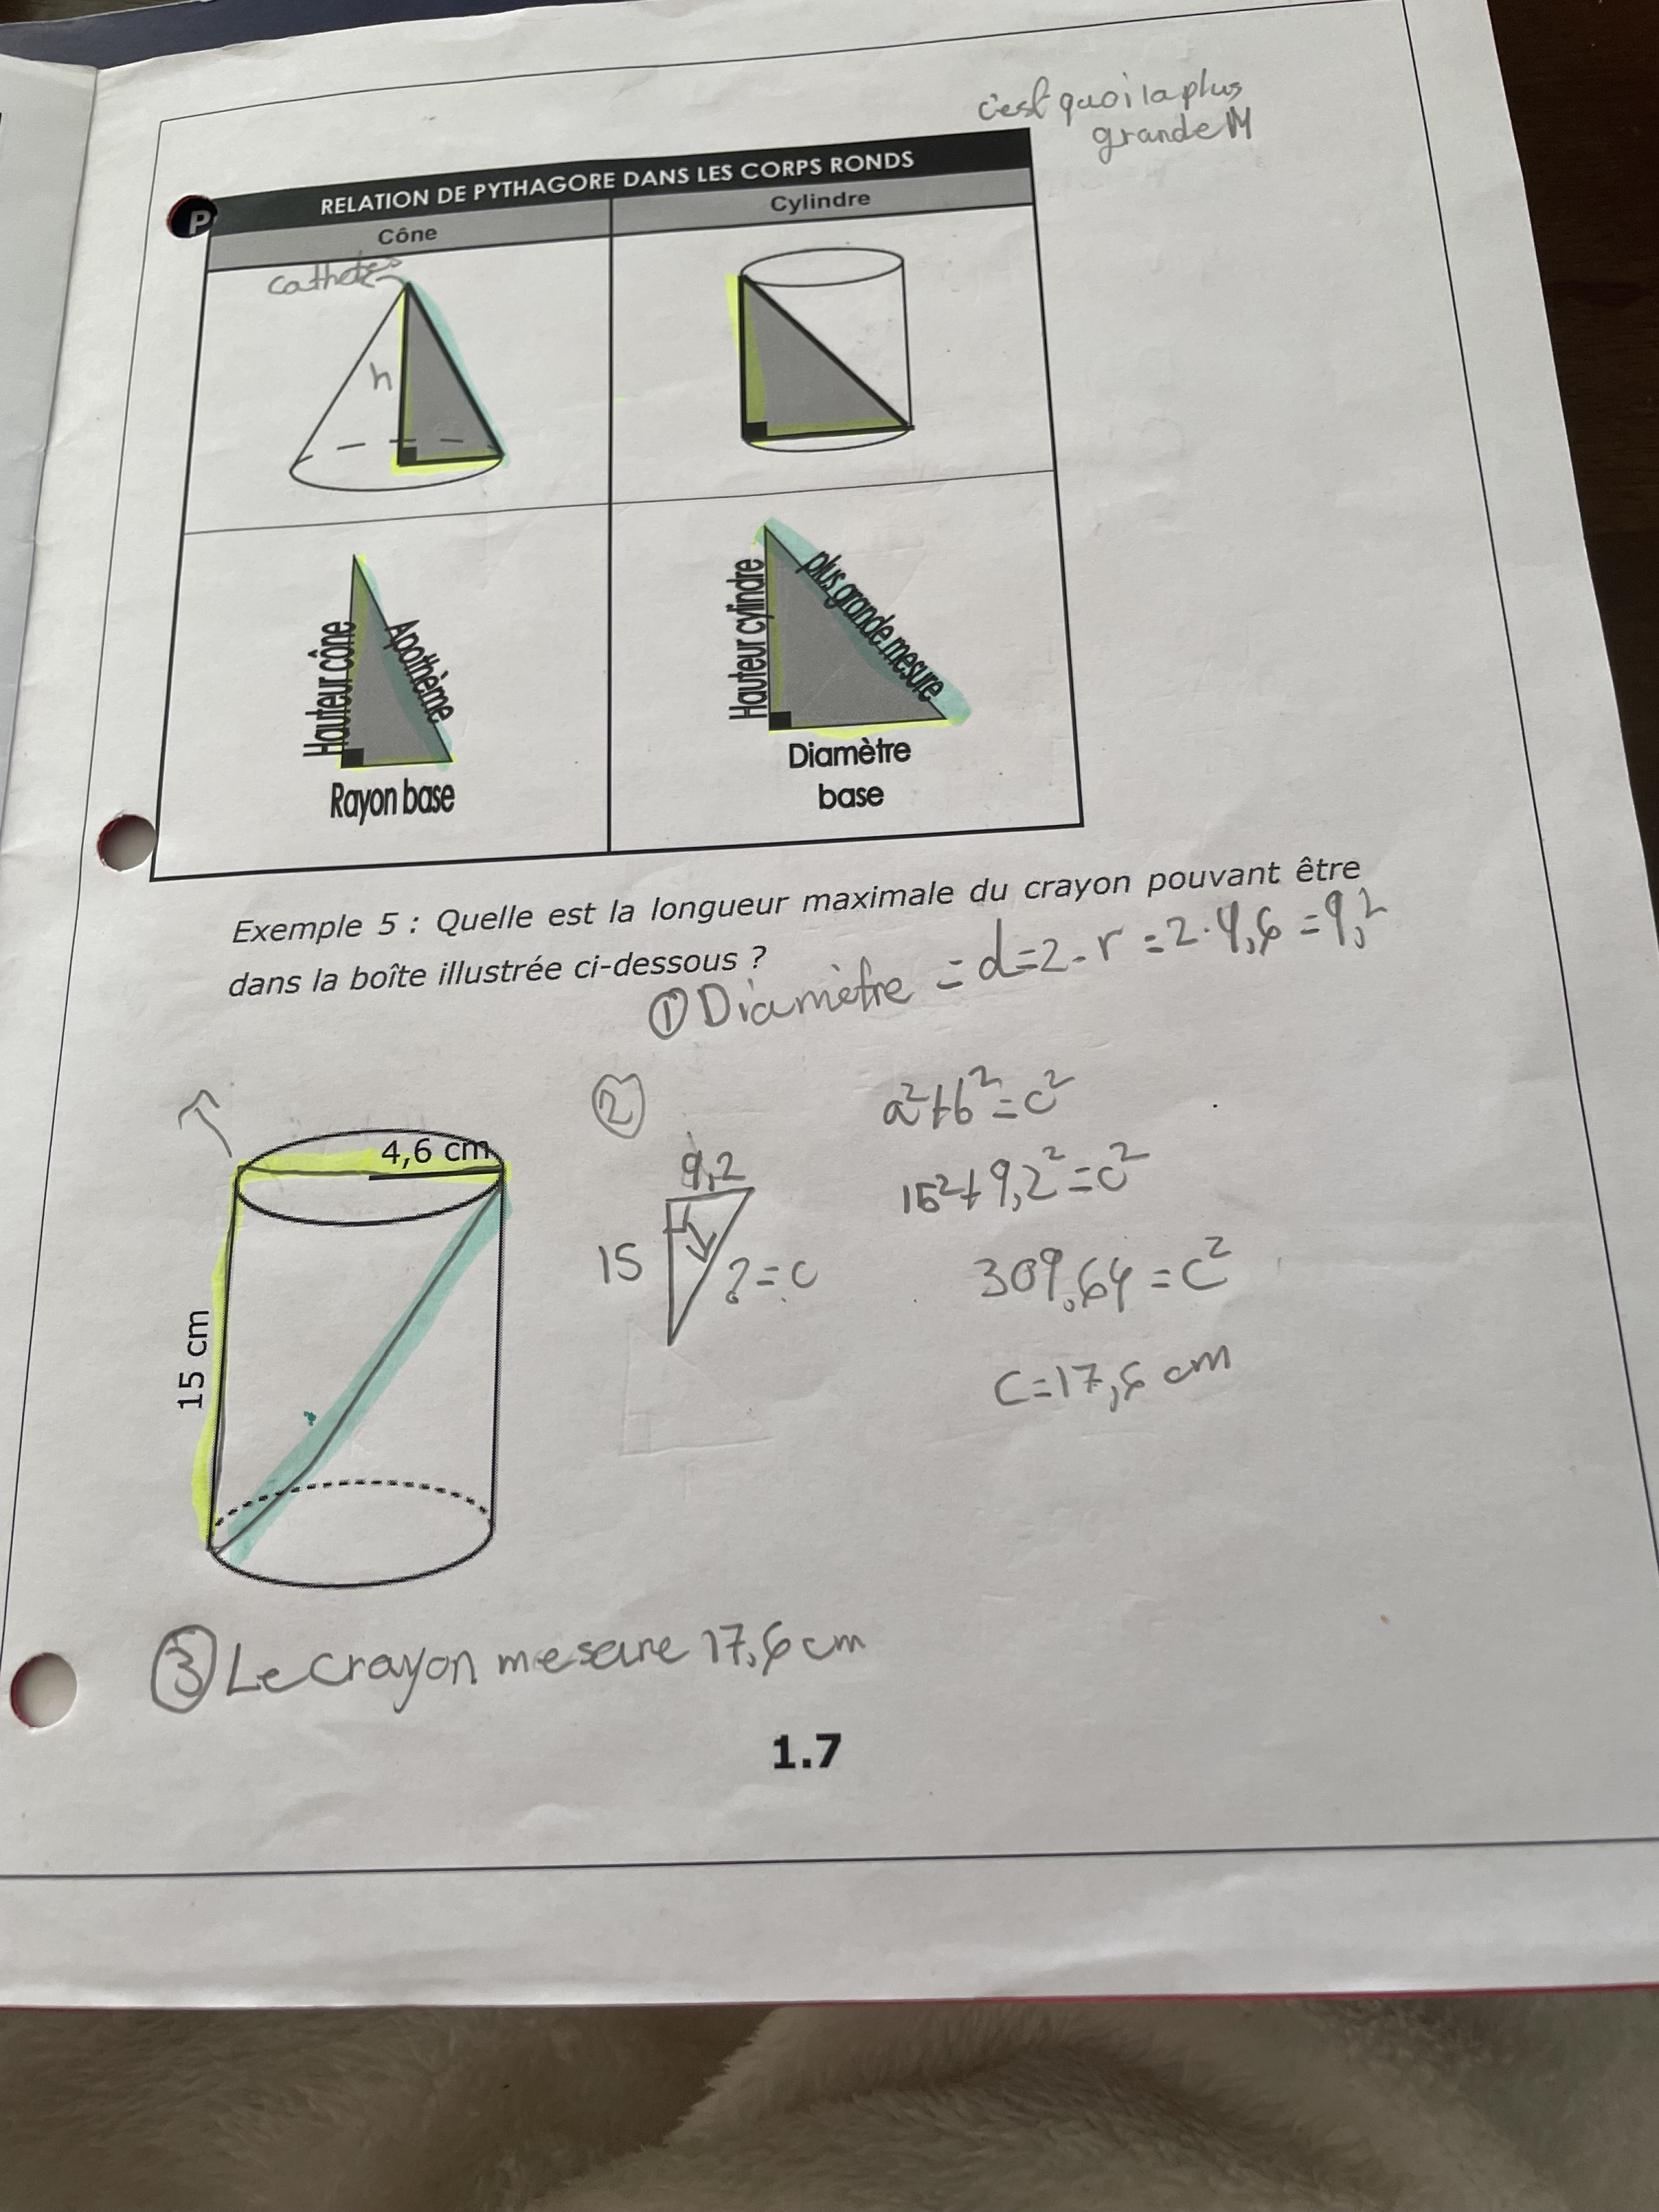 c'est quoi la plus
grande M
P
RELATION DE PYTHAGORE DANS LES CORPS RONDS
Cône
Cylindre
cathetes
h
Hauteur cône
Apothème
Rayon base
Hauteur cylindre
plus grande mesure
Diamètre
base
Exemple 5 : Quelle est la longueur maximale du crayon pouvant être
dans la boîte illustrée ci-dessous ?
① Diamètre = d=2·r = 2·4,6 = 9,2
②
a²+b²=c²
4,6 cm
9,2
15²+9,2²=c²
15
?=c
309,64=c²
15 cm
c=17,6 cm
③ Le crayon mesure 17,6 cm
1.7